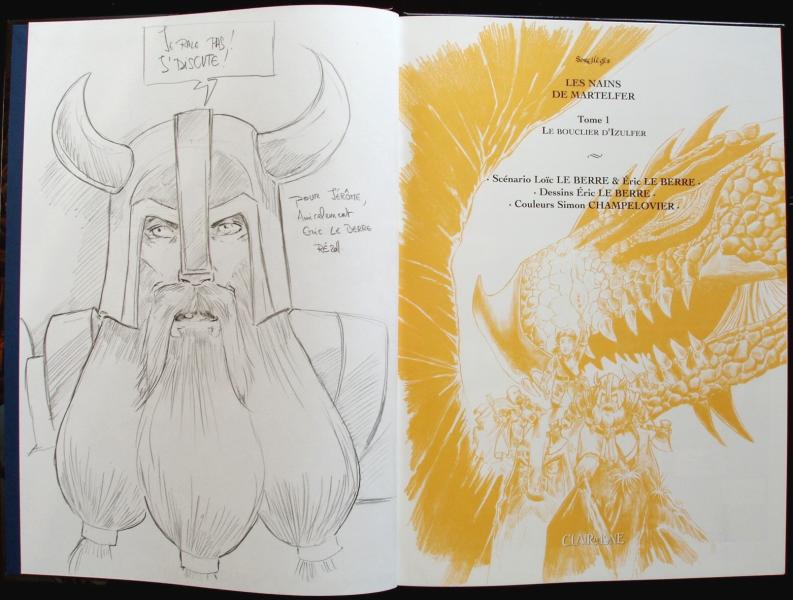 JE RALE PAS!
J'DISCUTE!
POUR JÉRÔME,
Amicalement
Eric LE BERRE
Sortilèges
LES NAINS
DE MARTELFER
Tome 1
LE BOUCLIER D'IZULFER
· Scénario Loïc LE BERRE & Éric LE BERRE ·
· Dessins Éric LE BERRE ·
· Couleurs Simon CHAMPELOVIER ·
CLAIR DE LUNE